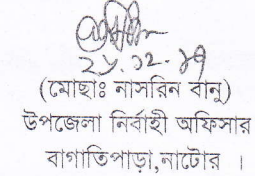 (মোছাঃ নাসরিন বানু)
উপজেলা নির্বাহী অফিসার
বাগাতিপাড়া,নাটোর ।